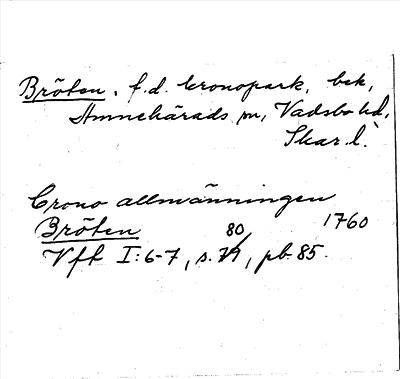 Bröten, f.d. kronopark, bek,
Amnehärads sn, Vadsbo hd,
Skar. l.
Crono allmänningen
Bröten 80 1760
Vft I:6-7, s. 79, pb. 85.